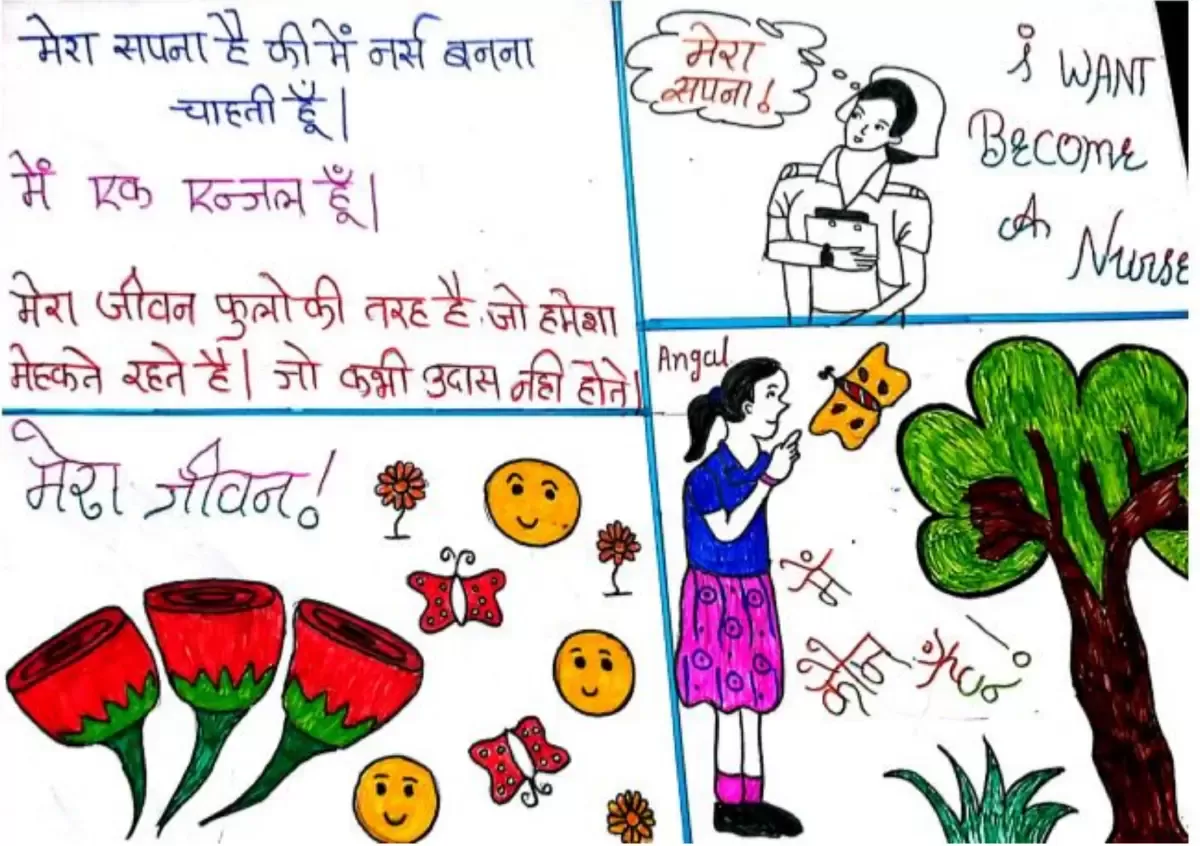 मेरा सपना है की में नर्स बनना
चाहती हूँ।
में एक एन्जल हूँ।
मेरा जीवन फुलो की तरह है, जो हमेशा
मेहकते रहते है। जो कभी उदास नही होते।
मेरा
सपना!
i WANT
BECOME
A
Nurse
मेरा जीवन!
Angal